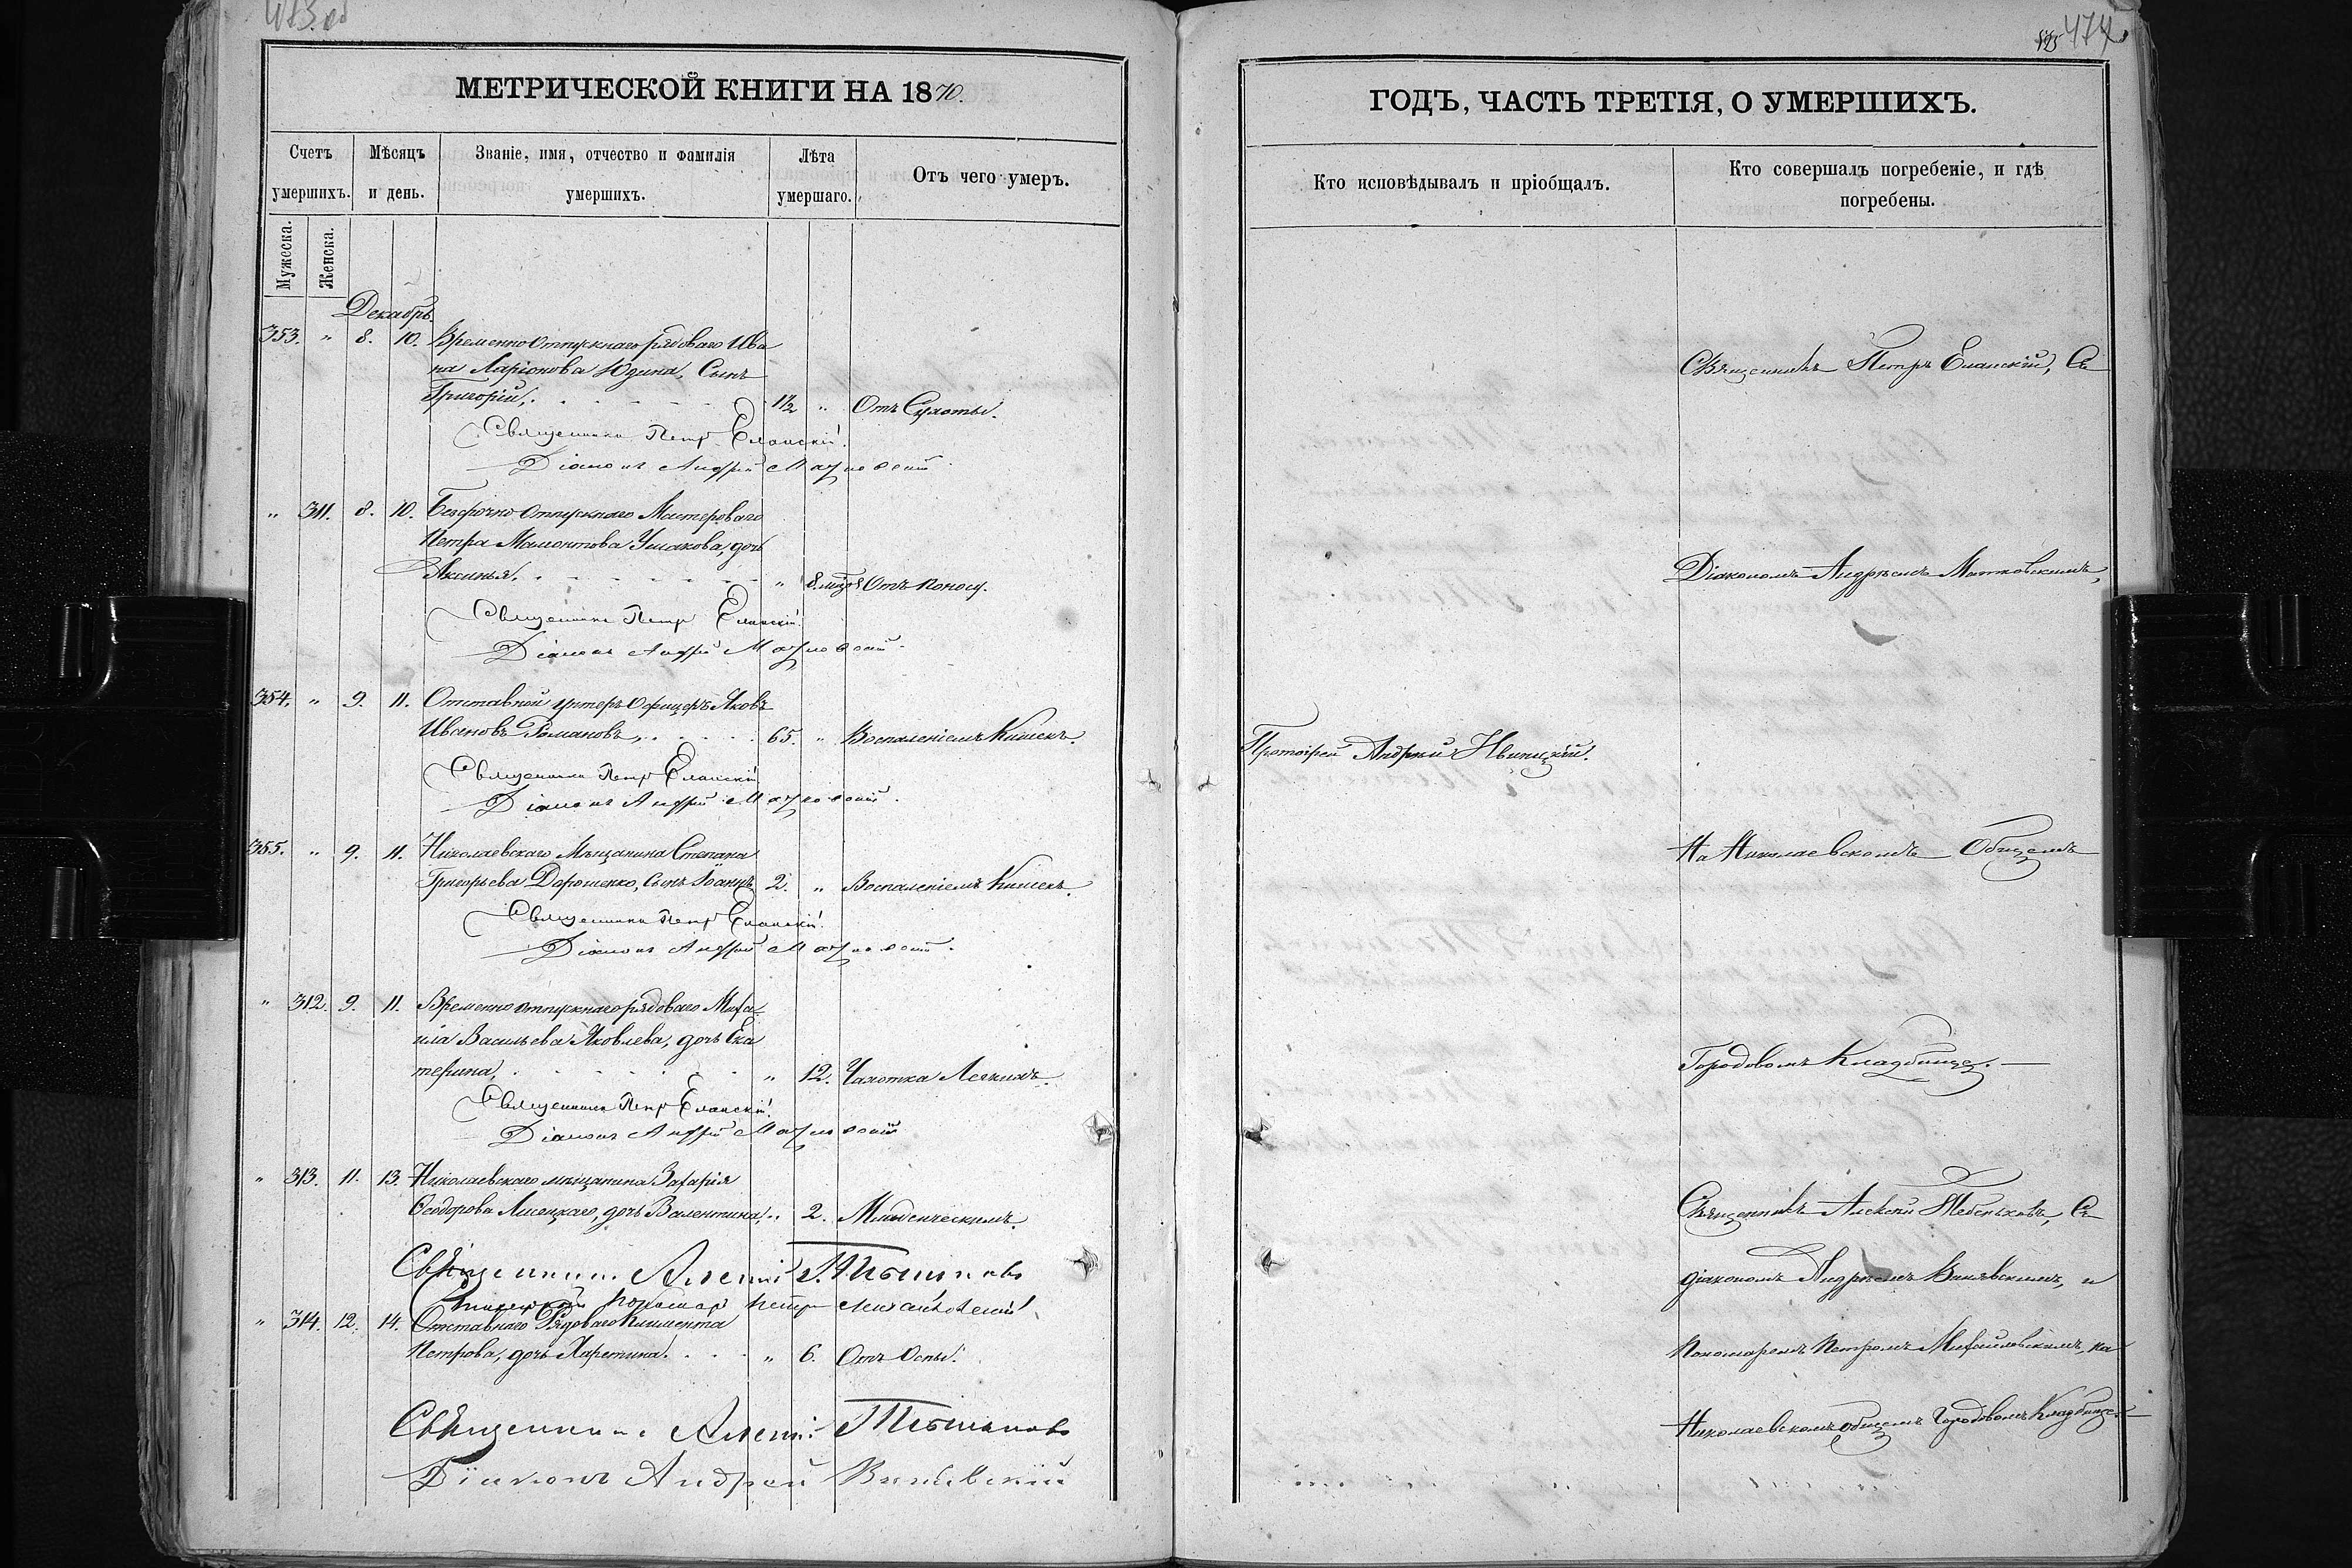 473 об
МЕТРИЧЕСКОЙ КНИГИ НА 1870.
Счетъ умершихъ.
Мѣсяцъ и день.
Званіе, имя, отчество и фамилія умершихъ.
Лѣта умершаго.
Отъ чего умеръ.
Мужеска.
Женска.
Декабрь.
353. " 8. 10. Временно отпускнаго рядоваго Ива
на Ларіонова Юдина, Сынъ
Григорій, 1½ " Отъ Сухоты.
Священникъ Петръ Еланскій.
Діаконъ Андрей
" 311. 8. 10. Безсрочно отпускнаго Мастероваго
Петра Мамонтова Ушакова, дочь
Аксинья. " 8. мѣс. Отъ поносу.
Священникъ Петръ Еланскій.
Діаконъ Андрей
354. " 9. 11. Отставной унтеръ Офицеръ Яковъ
Ивановъ Романовъ, 65. " Воспаленіемъ Кишекъ.
Священникъ Петръ Еланскій
Діаконъ Андрей
355. " 9. 11. Николаевскаго Мѣщанина Степана
Григорьева Дорошенко, сынъ Іоаннъ 2. " Воспаленіемъ Кишекъ.
Священникъ Петръ Еланскій.
Діаконъ Андрей
" 312. 9. 11. Временно отпускнаго рядоваго Миха
ила Васильева Яковлева, дочь Ека
терина, " 12. Чахотка Легкихъ.
Священникъ Петръ Еланскій.
Діаконъ Андрей
" 313. 11. 13. Николаевскаго мѣщанина Захарія
Ѳеодорова Лисецкаго, дочь Валентина, " 2. Младенческимъ.
Священникъ Алексій
пономарь Петръ Михайловскій
" 314. 12. 14. Отставнаго Рядоваго Климента
Петрова, дочь Харитина. " 6. Отъ Оспы.
Священникъ Алексій
Діаконъ Андрей
474
ГОДЪ, ЧАСТЬ ТРЕТІЯ, О УМЕРШИХЪ.
Кто исповѣдывалъ и пріобщалъ.
Кто совершалъ погребеніе, и гдѣ погребены.
Священникъ Петръ Еланскій, Съ
Діакономъ Андреемъ
Протоіерей Андрей
На Николаевскомъ Общемъ
Городовомъ Кладбище.
Священникъ Алексій Съ
діакономъ Андреемъ и
Пономаремъ Петромъ Михайловскимъ, на
Николаевскомъ общемъ Городовомъ Кладбище.